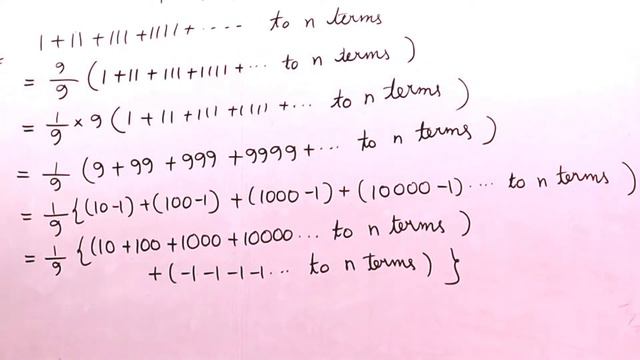 1 + 11 + 111 + 1111 + ---- to n terms
= 9/9 (1 + 11 + 111 + 1111 + ... to n terms)
= 1/9 × 9 (1 + 11 + 111 + 1111 + ... to n terms)
= 1/9 (9 + 99 + 999 + 9999 + ... to n terms)
= 1/9 {(10-1) + (100-1) + (1000-1) + (10000-1) .... to n terms)
= 1/9 {(10 + 100 + 1000 + 10000 ... to n terms)
+ (-1-1-1-1... to n terms) }